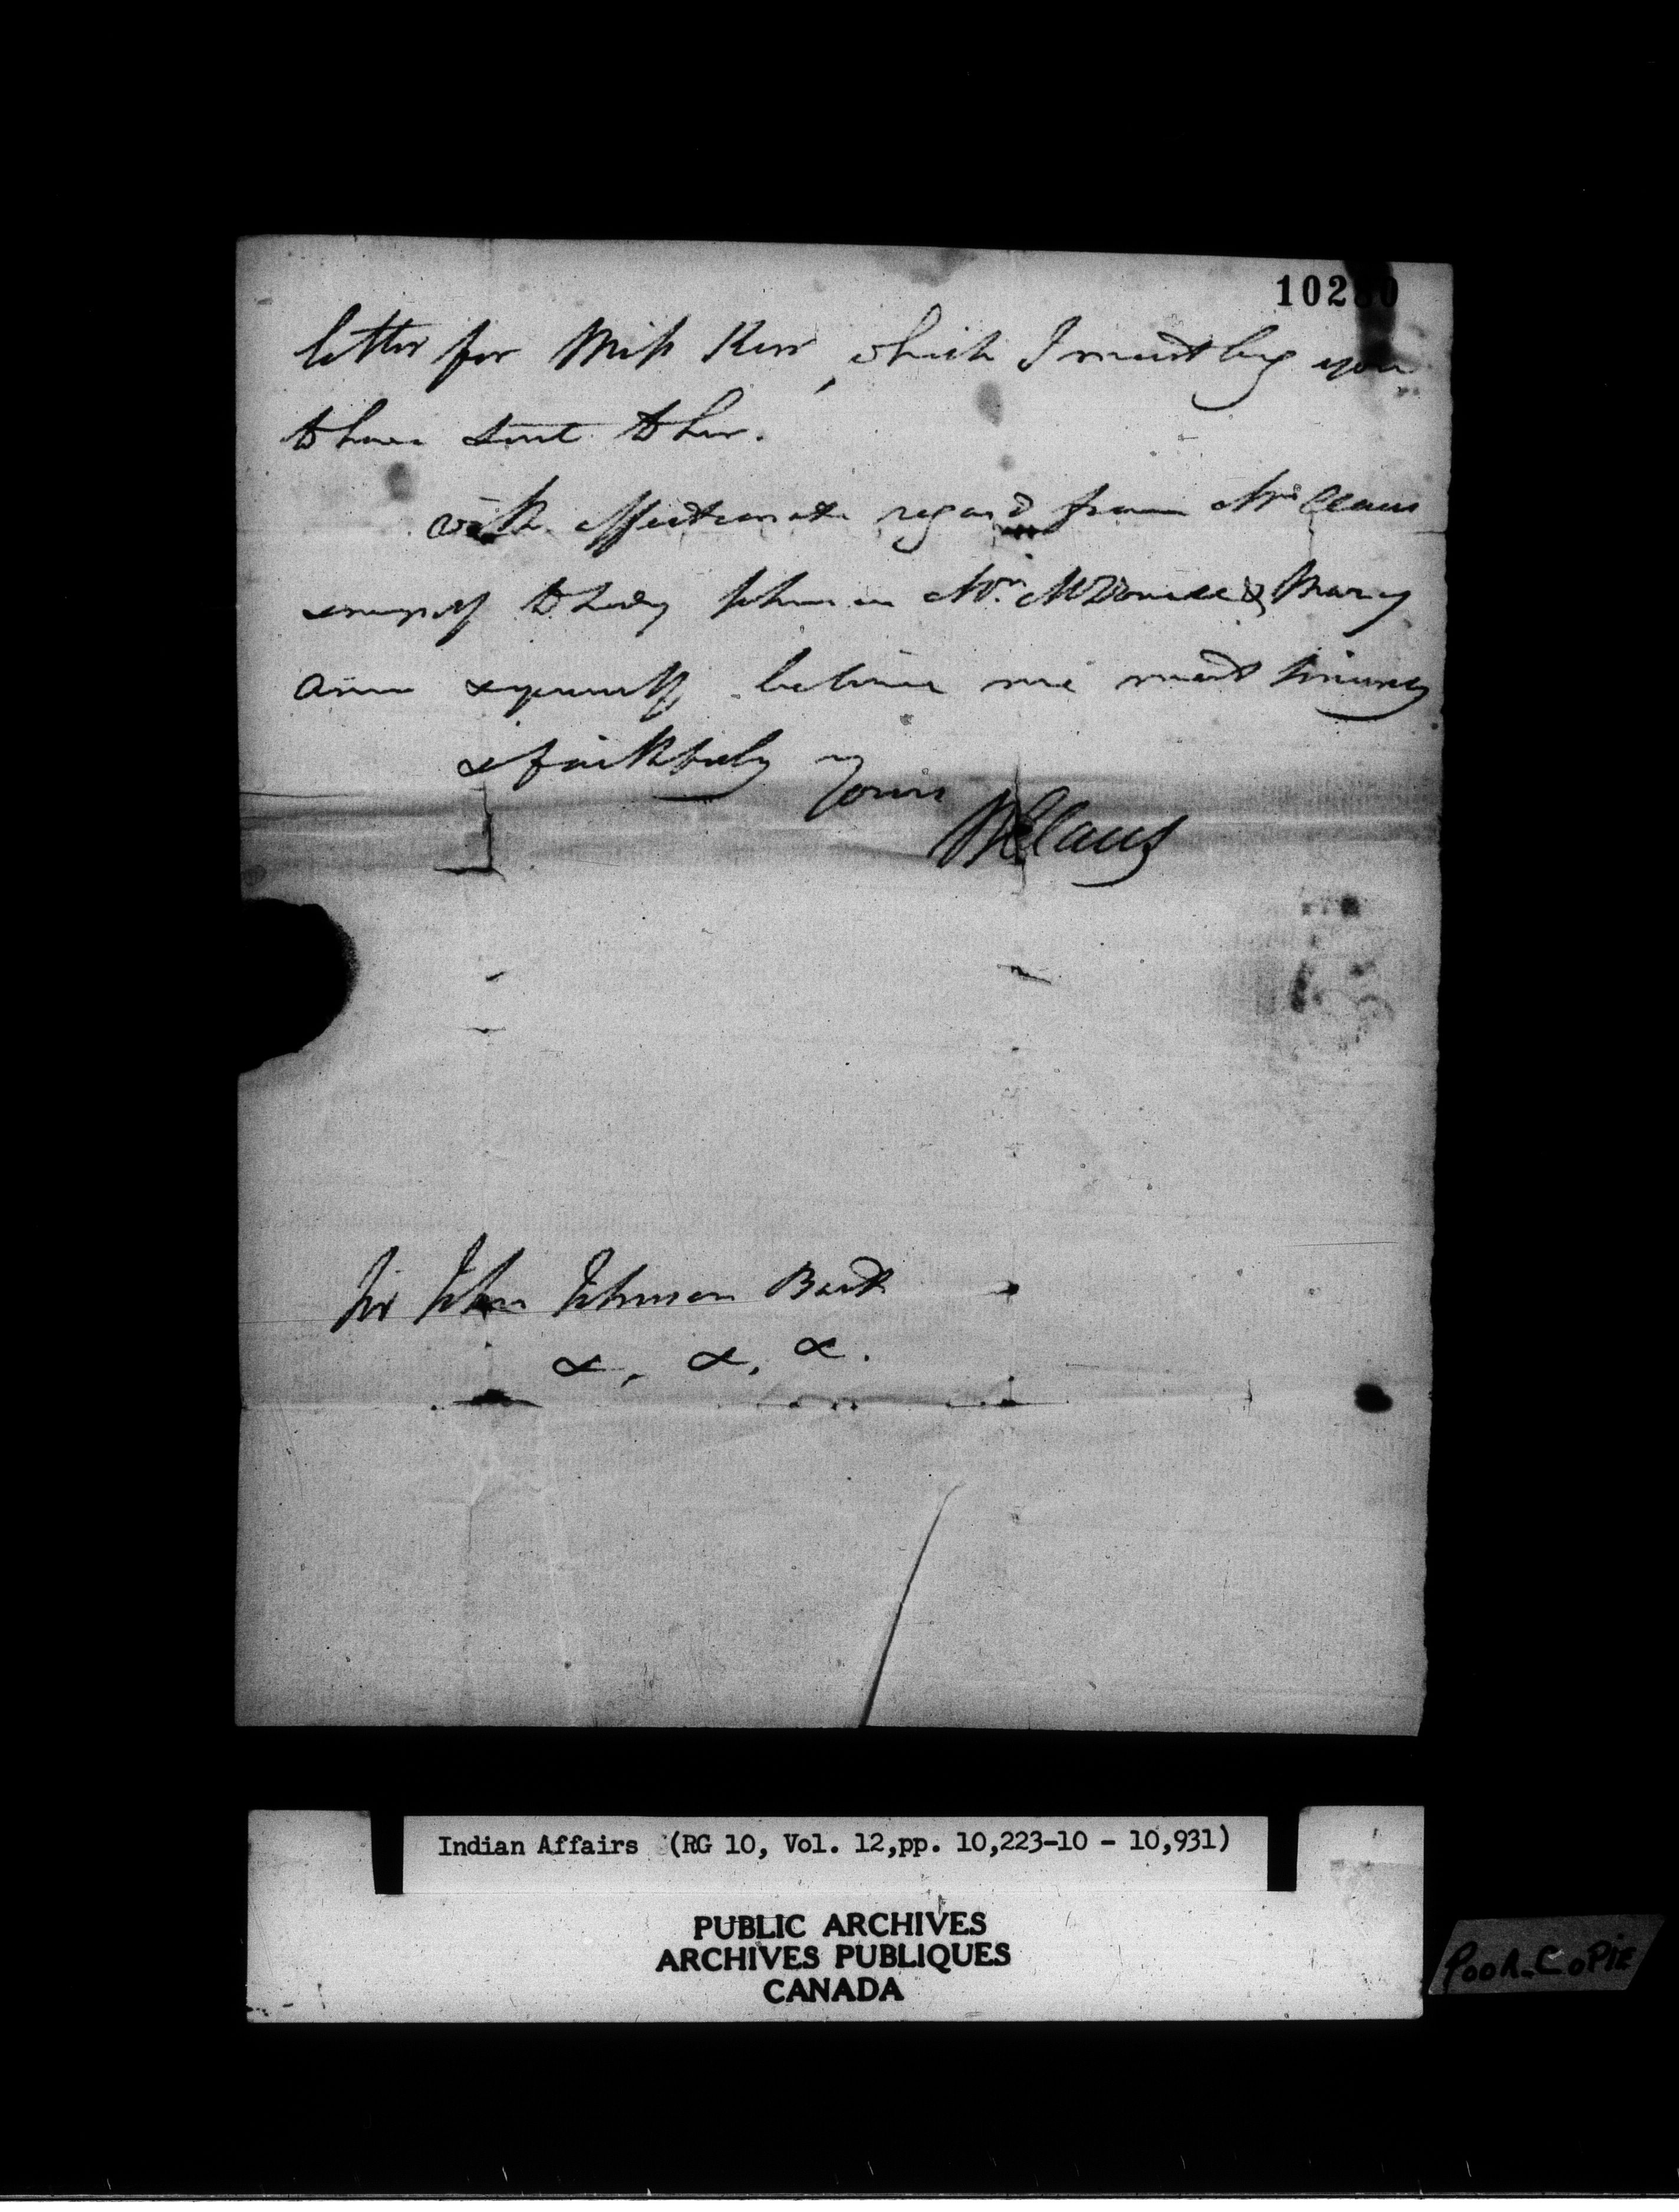 letter for Miss Kerr, which I must beg you
to have sent to her.
with affectionate regard from Mrs Claus
& myself to Lady Johnson Mrs McDonell & Mary
Ann & yourself, believe me most sincerely
& faithfully Yours
WClaus
Sir John Johnson Bart
&, &, &.
Indian Affairs (RG 10, Vol. 12,pp. 10,223-10 - 10,931)
PUBLIC ARCHIVES
ARCHIVES PUBLIQUES
CANADA
Poor-Copie